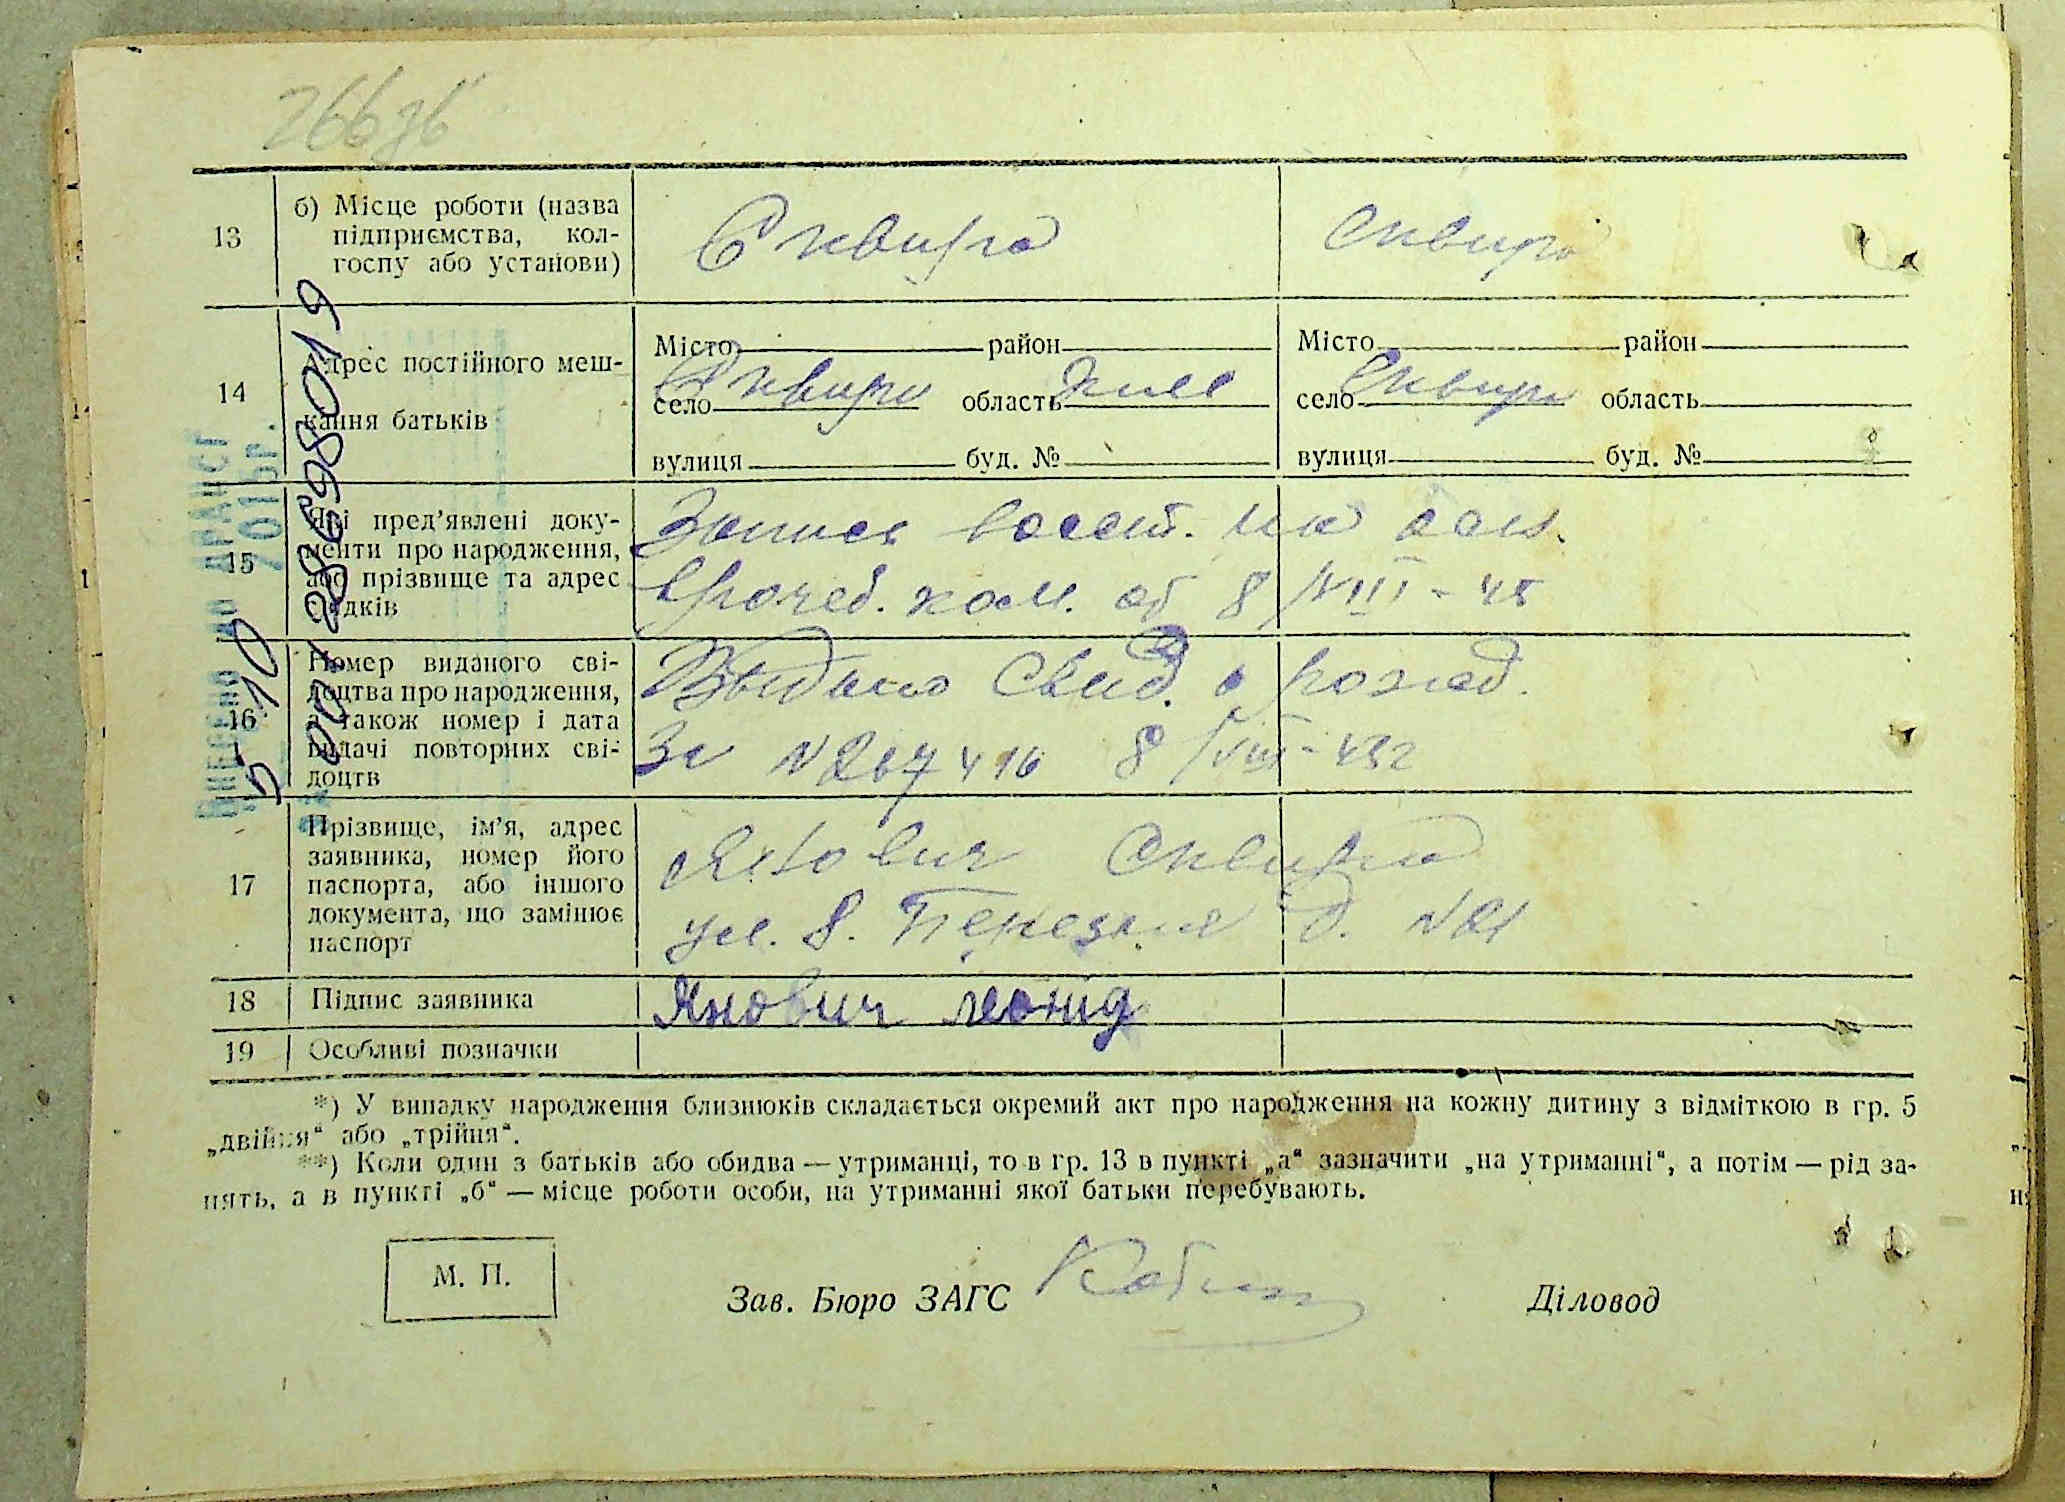 266 зв
13
б) Місце роботи (назва
підприємства, кол-
госпу або установи)
Сквира
Сквира
14
Адрес постійного меш-
кання батьків
Місто район
село Сквира область Киев
вулиця буд. №
Місто район
село Сквира область
вулиця буд. №
15
Які пред'явлені доку-
менти про народження,
або прізвище та адрес
свідків
Запись восст. на осн.
врачеб. ком. от 8/VIII-45
16
Номер виданого сві-
доцтва про народження,
а також номер і дата
видачі повторних сві-
доцтв
Выдано Свид. о рожд.
За N 267416 8/VIII-45г
17
Прізвище, ім'я, адрес
заявника, номер його
паспорта, або іншого
документа, що замінює
паспорт
Янович Сквира
ул. 8. Березня д. N21
18
Підпис заявника
Янович Леонид
19
Особливі позначки
Внесено до ДРАЦСГ
5 10 2015р.
00128698019
*) У випадку народження близнюків складається окремий акт про народження на кожну дитину з відміткою в гр. 5
„двійня“ або „трійня“.
**) Коли один з батьків або обидва — утриманці, то в гр. 13 в пункті „а“ зазначити „на утриманні“, а потім — рід за-
нять, а в пункті „б“ — місце роботи особи, на утриманні якої батьки перебувають.
М. П.
Зав. Бюро ЗАГС
Діловод